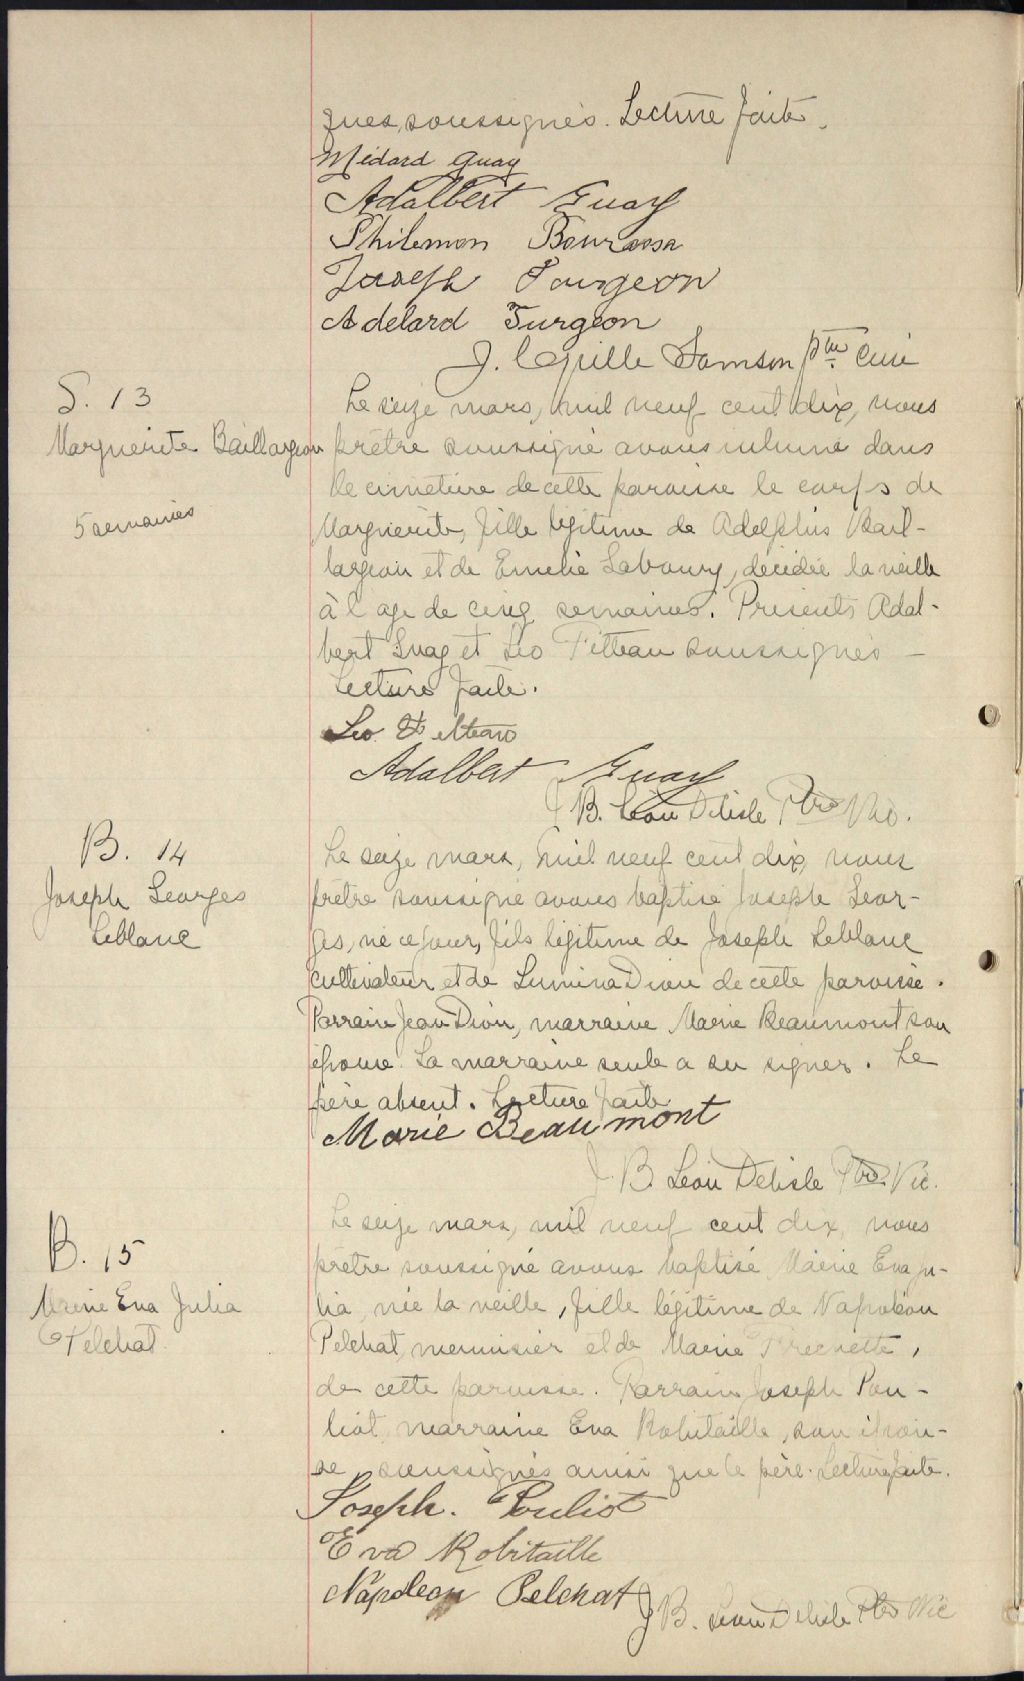 ques, soussignés. Lecture faite.
Médard Guay
Adalbert Guay
Philemon Bourassa
Joseph Tourgeon
Adelard Turgeon
J. Cyrille Samson ptre curé
S. 13
Marguerite Baillargeon
5 semaines
Le seize mars, mil neuf cent dix, nous
prêtre soussigné avons inhumé dans
le cimetière de cette paroisse le corps de
Marguerite, fille légitime de Adelphis Bail-
largeon et de Emelie Labourg, décédée la veille
à l'age de cinq semaines. Présents Adal-
bert Guay et Léo Filteau soussignés —
Lecture faite.
Leo Filteau
Adalbert Guay
J. B. Léon Delisle Ptre Vic.
B. 14
Joseph Georges
Leblanc
Le seize mars, mil neuf cent dix, nous
prêtre soussigné avons baptisé Joseph Geor-
ges, né ce jour, fils légitime de Joseph Leblanc
cultivateur et de Lumina Dion de cette paroisse.
Parrain Jean Dion, marraine Marie Beaumont son
épouse. La marraine seule a su signer. Le
père absent. Lecture faite
Marie Beaumont
J. B. Léon Delisle Ptre. Vic.
B. 15
Marie Eva Julia
Pelchat
Le seize mars, mil neuf cent dix, nous
prêtre soussigné avons baptisé Marie Eva Ju-
lia, née la veille, fille légitime de Napoléon
Pelchat, menuisier et de Marie Frechette,
de cette paroisse. Parrain Joseph Pou-
liot, marraine Eva Robitaille, son épou-
se, soussignés ainsi que le père. Lecture faite.
Joseph. Pouliot
Eva Robitaille
Napoleon Pelchat
J B. Léon Delisle Ptre Vic